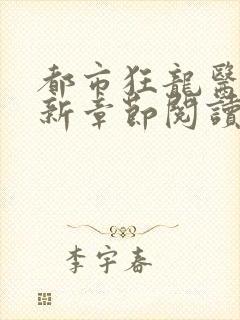 都市狂龍醫
新章節閱讀
李宇春